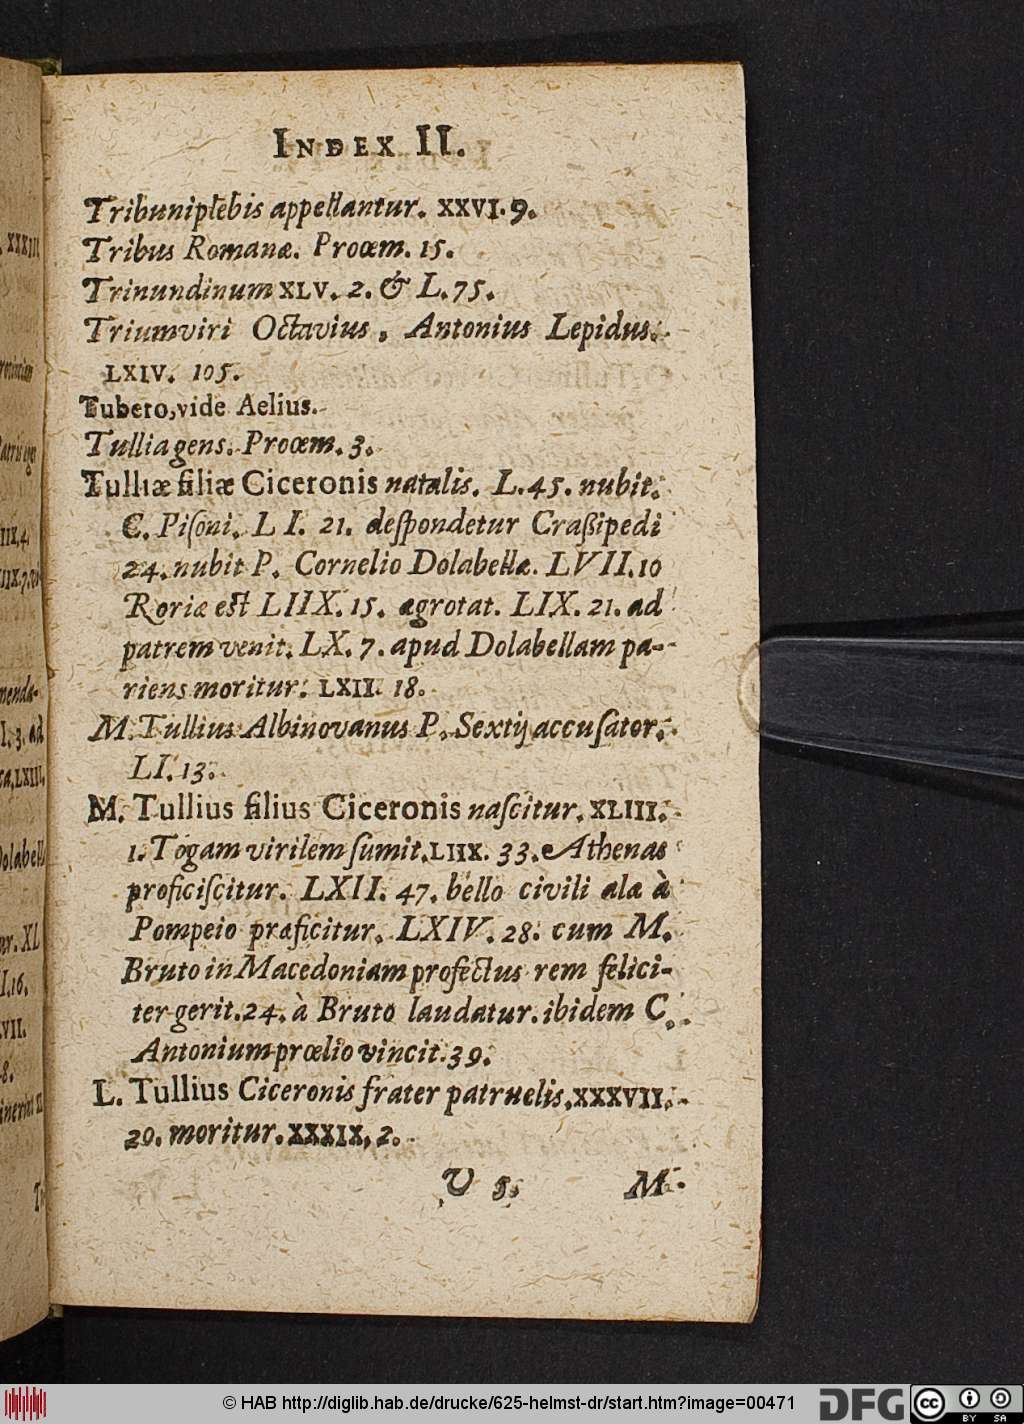 INDEX II.
Tribuniplebis appellantur. XXVI. 9.
Tribus Romanæ. Proœm. 15.
Trinundinum XLV. 2. & L. 75.
Triumviri Octavius, Antonius Lepidus.
LXIV. 105.
Tubero, vide Aelius.
Tullia gens. Proœm. 3.
Tulliæ filiæ Ciceronis natalis. L. 45. nubit.
C. Piſoni. L I. 21. deſpondetur Craßipedi
24. nubit P. Cornelio Dolabellæ. LVII. 10
Roriæ est LIIX. 15. ægrotat. LIX. 21. ad
patrem venit. LX. 7. apud Dolabellam pa-
riens moritur. LXII. 18.
M. Tullius Albinovanus P. Sextij accuſator.
LI. 13.
M. Tullius filius Ciceronis naſcitur. XLIII.
1. Togam virilem ſumit. LIIX. 33. Athenas
proficiſcitur. LXII. 47. bello civili alæ à
Pompeio præficitur. LXIV. 28. cum M.
Bruto in Macedoniam profectus rem felici-
ter gerit. 24. à Bruto laudatur. ibidem C.
Antonium prœlio vincit. 39.
L. Tullius Ciceronis frater patruelis. XXXVII.
20. moritur. XXXIX, 2.
V 5. M.
© HAB http://diglib.hab.de/drucke/625-helmst-dr/start.htm?image=00471
DFG
cc BY SA